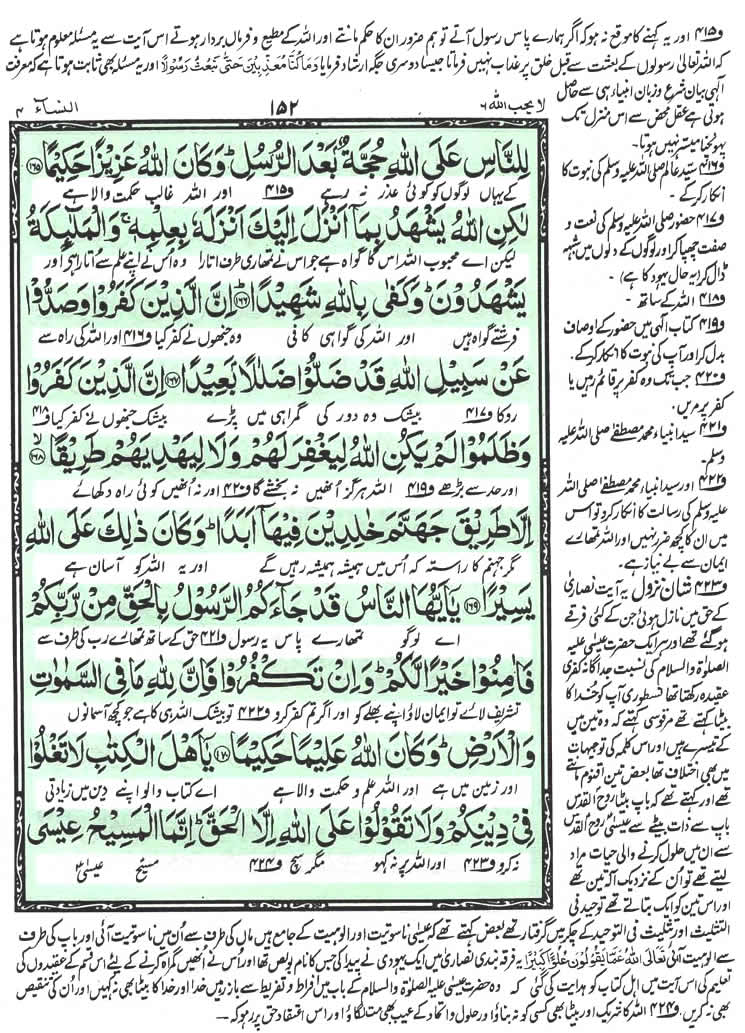 و۴۱۵ اور یہ کہنے کا موقع نہ ہو کہ اگر ہمارے پاس رسول آتے تو ہم ضرور ان کا حکم مانتے اور اللہ کے مطیع و فرماں بردار ہوتے اس آیت سے یہ مسئلہ معلوم ہوتا ہے
کہ اللہ تعالیٰ رسولوں کے بعثت سے قبل خلق پر عذاب نہیں فرماتا جیسا دوسری جگہ ارشاد فرمایا وَمَا كُنَّا مُعَذِّبِيْنَ حَتّٰى نَبْعَثَ رَسُوْلًا اور یہ مسئلہ بھی ثابت ہوتا ہے کہ معرفت
لا یحب اللہ ۶
۱۵۲
النساء ۴
لِلنَّاسِ عَلَى اللّٰهِ حُجَّةٌۢ بَعْدَ الرُّسُلِ ؕ وَكَانَ اللّٰهُ عَزِيْزًا حَكِيْمًا ﴿۱۶۵﴾
کے یہاں لوگوں کو کوئی عذر نہ رہے و۴۱۵ اور اللہ غالب حکمت والا ہے
لٰكِنِ اللّٰهُ يَشْهَدُ بِمَاۤ اَنْزَلَ اِلَيْكَ اَنْزَلَهٗ بِعِلْمِهٖ ۚ وَالْمَلٰٓئِكَةُ
لیکن اے محبوب اللہ اس کا گواہ ہے جو اس نے تمھاری طرف اتارا وہ اس نے اپنے علم سے اتارا ہے اور
يَشْهَدُوْنَ ؕ وَكَفٰى بِاللّٰهِ شَهِيْدًا ﴿۱۶۶﴾ اِنَّ الَّذِيْنَ كَفَرُوْا وَصَدُّوْا
فرشتے گواہ ہیں اور اللہ کی گواہی کافی وہ جنھوں نے کفر کیا و۴۱۶ اور اللہ کی راہ سے
عَنْ سَبِيْلِ اللّٰهِ قَدْ ضَلُّوْا ضَلٰلًۢا بَعِيْدًا ﴿۱۶۷﴾ اِنَّ الَّذِيْنَ كَفَرُوْا
روکا و۴۱۷ بیشک وہ دور کی گمراہی میں پڑے بیشک جنھوں نے کفر کیا و۴۱۸
وَظَلَمُوْا لَمْ يَكُنِ اللّٰهُ لِيَغْفِرَ لَهُمْ وَلَا لِيَهْدِيَهُمْ طَرِيْقًا ﴿۱۶۸﴾
اور حد سے بڑھے و۴۱۹ اللہ ہرگز انھیں نہ بخشے گا و۴۲۰ اور نہ انھیں کوئی راہ دکھائے
اِلَّا طَرِيْقَ جَهَنَّمَ خٰلِدِيْنَ فِيْهَاۤ اَبَدًا ؕ وَكَانَ ذٰلِكَ عَلَى اللّٰهِ
مگر جہنم کا راستہ کہ اس میں ہمیشہ ہمیشہ رہیں گے اور یہ اللہ کو آسان ہے
يَسِيْرًا ﴿۱۶۹﴾ يٰۤاَيُّهَا النَّاسُ قَدْ جَآءَكُمُ الرَّسُوْلُ بِالْحَقِّ مِنْ رَّبِّكُمْ
اے لوگو تمھارے پاس یہ رسول و۴۲۱ حق کے ساتھ تمھارے رب کی طرف سے
فَاٰمِنُوْا خَيْرًا لَّكُمْ ؕ وَاِنْ تَكْفُرُوْا فَاِنَّ لِلّٰهِ مَا فِى السَّمٰوٰتِ
تشریف لائے تو ایمان لاؤ اپنے بھلے کو اور اگر تم کفر کرو و۴۲۲ تو بیشک اللہ ہی کا ہے جو کچھ آسمانوں
وَالْاَرْضِ ؕ وَكَانَ اللّٰهُ عَلِيْمًا حَكِيْمًا ﴿۱۷۰﴾ يٰۤاَهْلَ الْكِتٰبِ لَا تَغْلُوْا
اور زمین میں ہے اور اللہ علم و حکمت والا ہے اے کتاب والو اپنے دین میں زیادتی
فِىْ دِيْنِكُمْ وَلَا تَقُوْلُوْا عَلَى اللّٰهِ اِلَّا الْحَقَّ ؕ اِنَّمَا الْمَسِيْحُ عِيْسَى
نہ کرو و۴۲۳ اور اللہ پر نہ کہو مگر سچ و۴۲۴ مسیح عیسیٰ
الٰہی بیان شرع و زبان انبیاء ہی سے حاصل
ہوتی ہے عقل محض سے اس منزل تک
پہونچنا میسر نہیں ہوتا۔
و۴۱۶ سید عالم صلی اللہ علیہ وسلم کی نبوت کا
انکار کر کے ۔
و۴۱۷ حضور صلی اللہ علیہ وسلم کی نعت و
صفت چھپا کر اور لوگوں کے دلوں میں شبہہ
ڈال کر (یہ حال یہود کا ہے) ۔
و۴۱۸ اللہ کے ساتھ ۔
و۴۱۹ کتاب الٰہی میں حضور کے اوصاف
بدل کر اور آپ کی نبوت کا انکار کر کے ۔
و۴۲۰ جب تک وہ کفر پر قائم رہیں یا
کفر پر مریں ۔
و۴۲۱ سید انبیاء محمد مصطفٰے صلی اللہ علیہ
وسلم ۔
و۴۲۲ اور سید انبیاء محمد مصطفٰے صلی اللہ
علیہ وسلم کی رسالت کا انکار کرو تو اس
میں ان کا کچھ ضرر نہیں اور اللہ تمھارے
ایمان سے بے نیاز ہے ۔
و۴۲۳ شان نزول یہ آیت نصاریٰ
کے حق میں نازل ہوئی جن کے کئی فرقے
ہو گئے تھے اور ہر ایک حضرت عیسیٰ علیہ
الصلوٰۃ والسلام کی نسبت جداگانہ کفری
عقیدہ رکھتا تھا نسطوری آپ کو خدا کا
بیٹا کہتے تھے مرقوسی کہتے کہ وہ تین میں
کے تیسرے ہیں اور اس کلمہ کی توجیہات
میں بھی اختلاف تھا بعض تین اقنوم مانتے
تھے اور کہتے تھے کہ باپ بیٹا روح القدس
باپ سے ذات بیٹے سے عیسیٰ روح القدس
سے ان میں حلول کرنے والی حیات مراد
لیتے تھے تو ان کے نزدیک الٰہ تین تھے
اور اس تین کو ایک بتاتے تھے توحید فی
التثلیث اور تثلیث فی التوحید کے چکر میں گرفتار تھے بعض کہتے تھے کہ عیسیٰ ناسوتیت اور الوہیت کے جامع ہیں ماں کی طرف سے ان میں ناسوتیت آئی اور باپ کی طرف
سے الوہیت آئی تَعَالَى اللّٰهُ عَمَّا يَقُوْلُوْنَ عُلُوًّا كَبِيْرًا یہ فرقہ بندی نصاریٰ میں ایک یہودی نے پیدا کی جس کا نام بولص تھا اور اس نے انھیں گمراہ کرنے کے لئے اس قسم کے عقیدوں کی
تعلیم کی اس آیت میں اہل کتاب کو ہدایت کی گئی کہ وہ حضرت عیسیٰ علیہ الصلوٰۃ والسلام کے باب میں افراط و تفریط سے باز رہیں خدا اور خدا کا بیٹا بھی نہ کہیں اور ان کی تنقیص
بھی نہ کریں و۴۲۴ اللہ کا شریک اور بیٹا بھی کسی کو نہ بناؤ اور حلول و اتحاد کے عیب بھی مت لگاؤ اور اس اعتقاد حق پر رہو کہ ۔